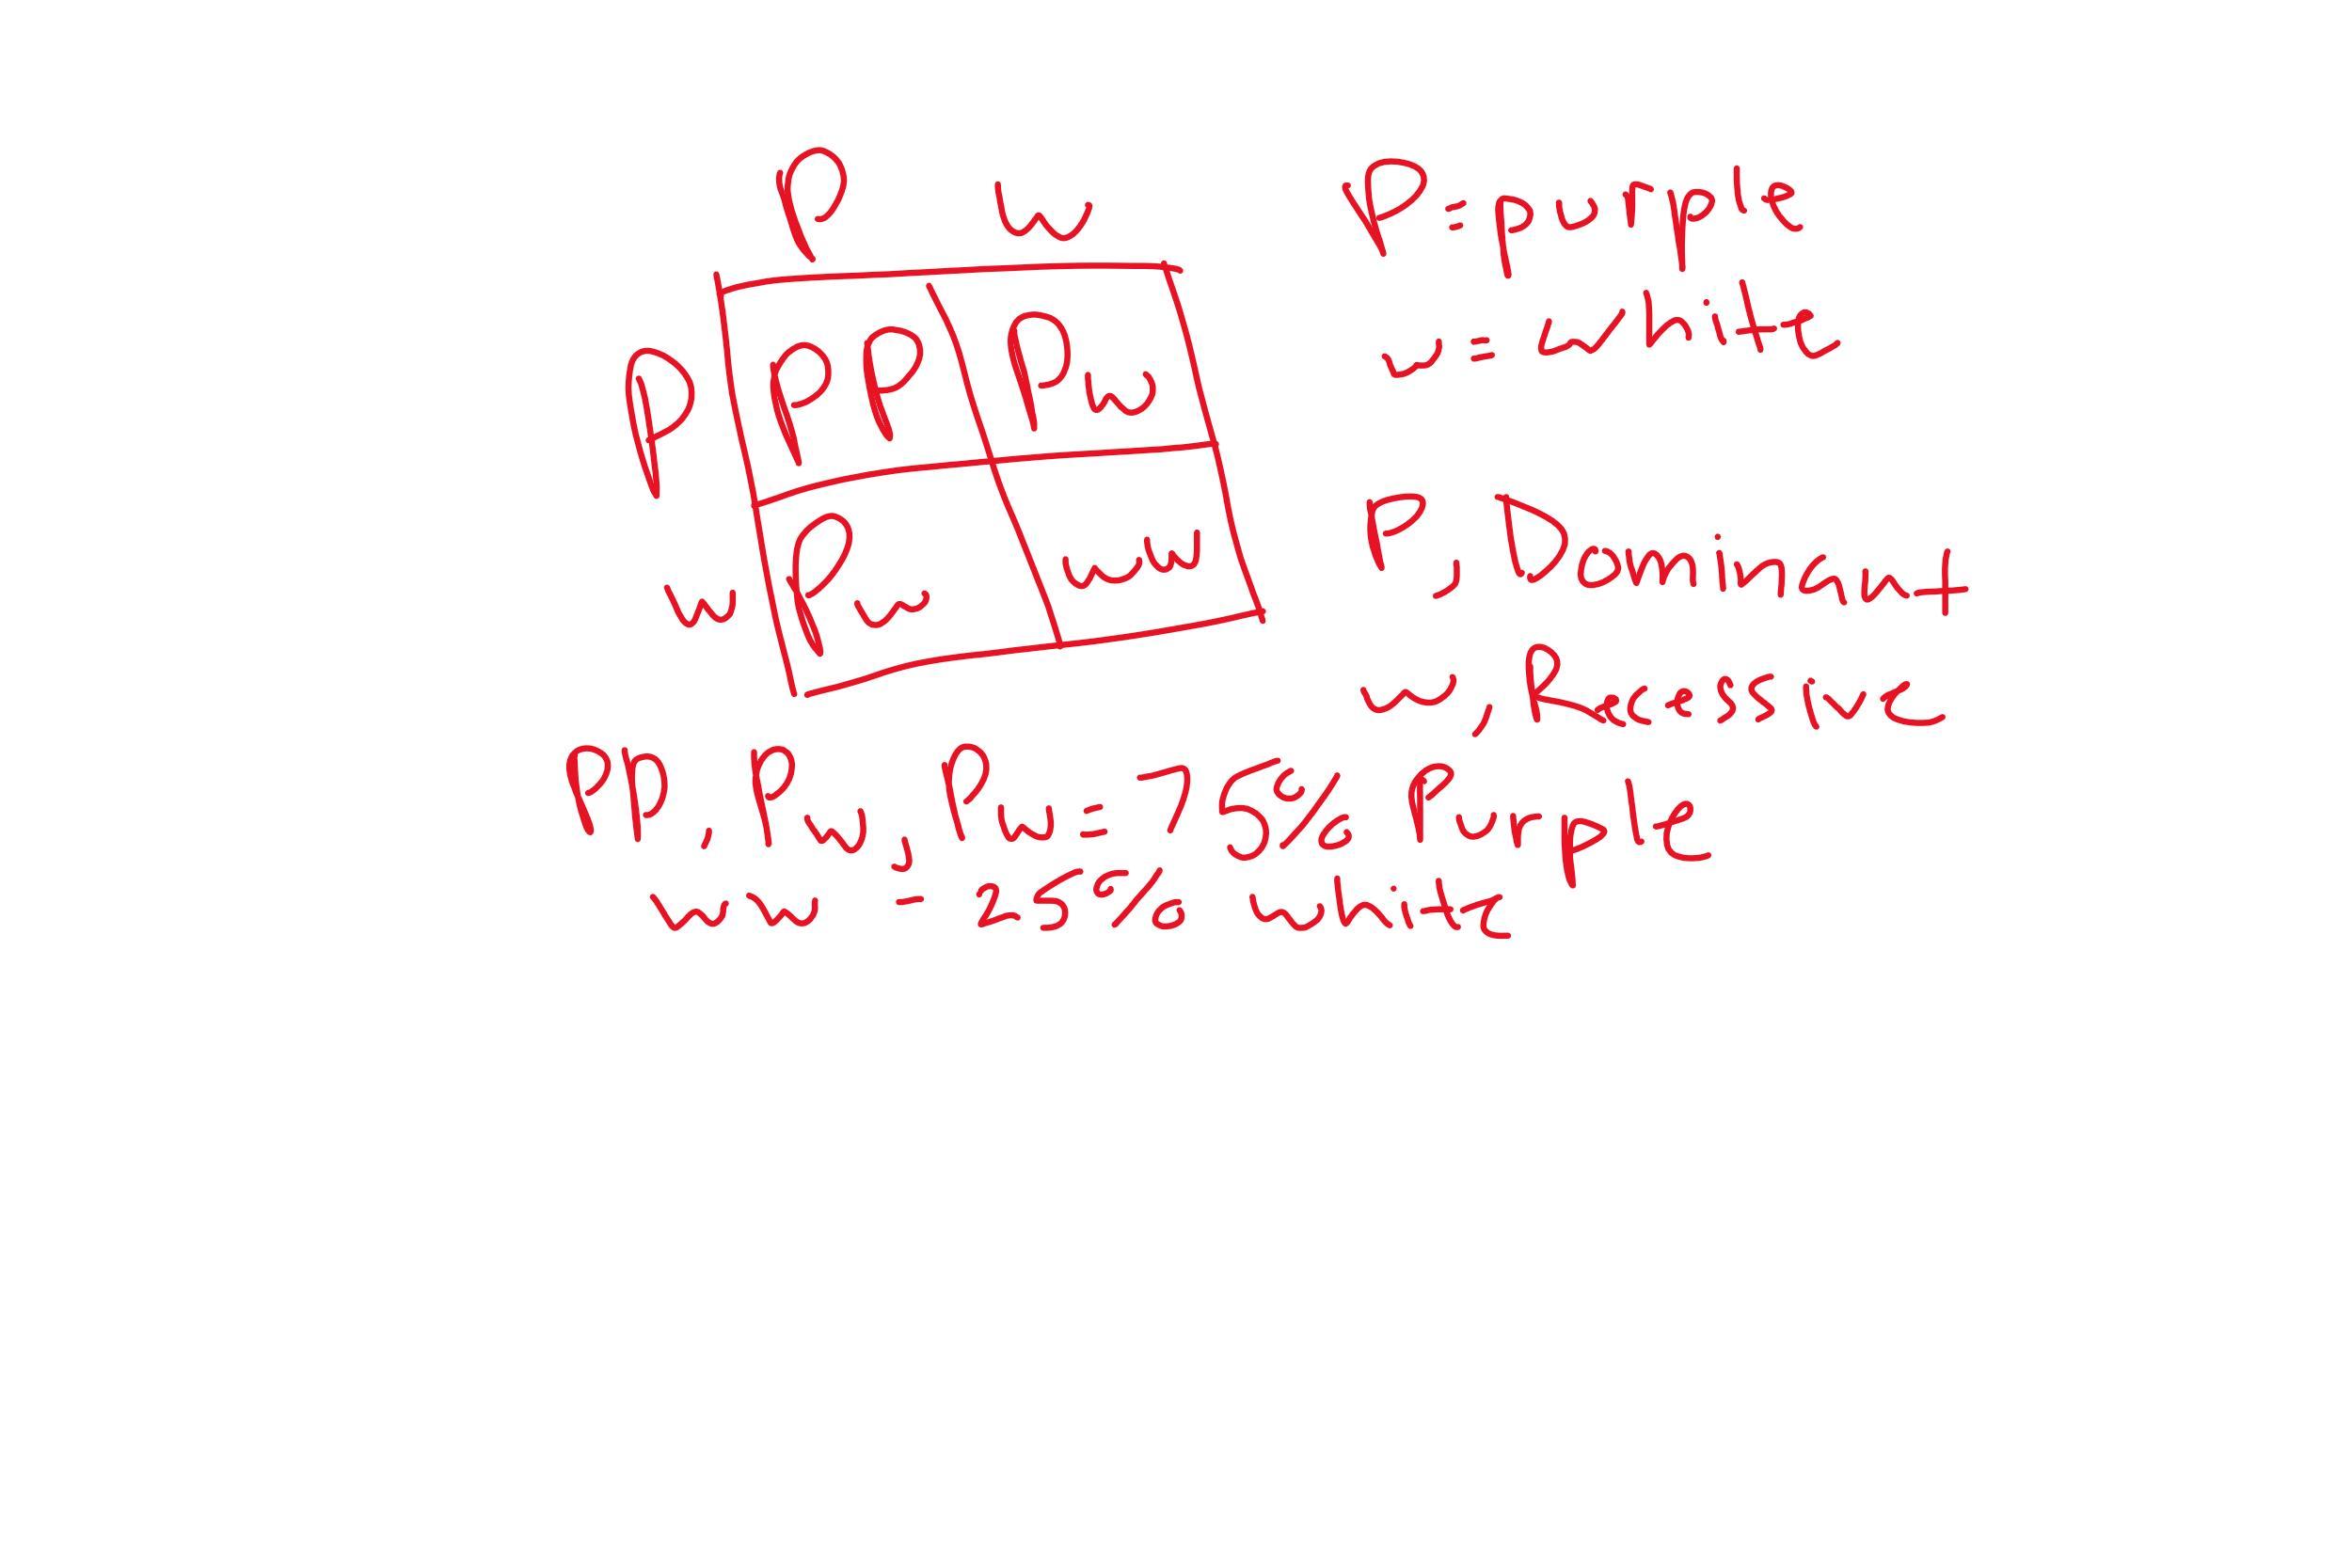 P w
P = purple
w = white
P PP Pw
w Pw ww
P, Dominant
w, Recessive
PP, Pw, Pw = 75% Purple
ww - 25% white